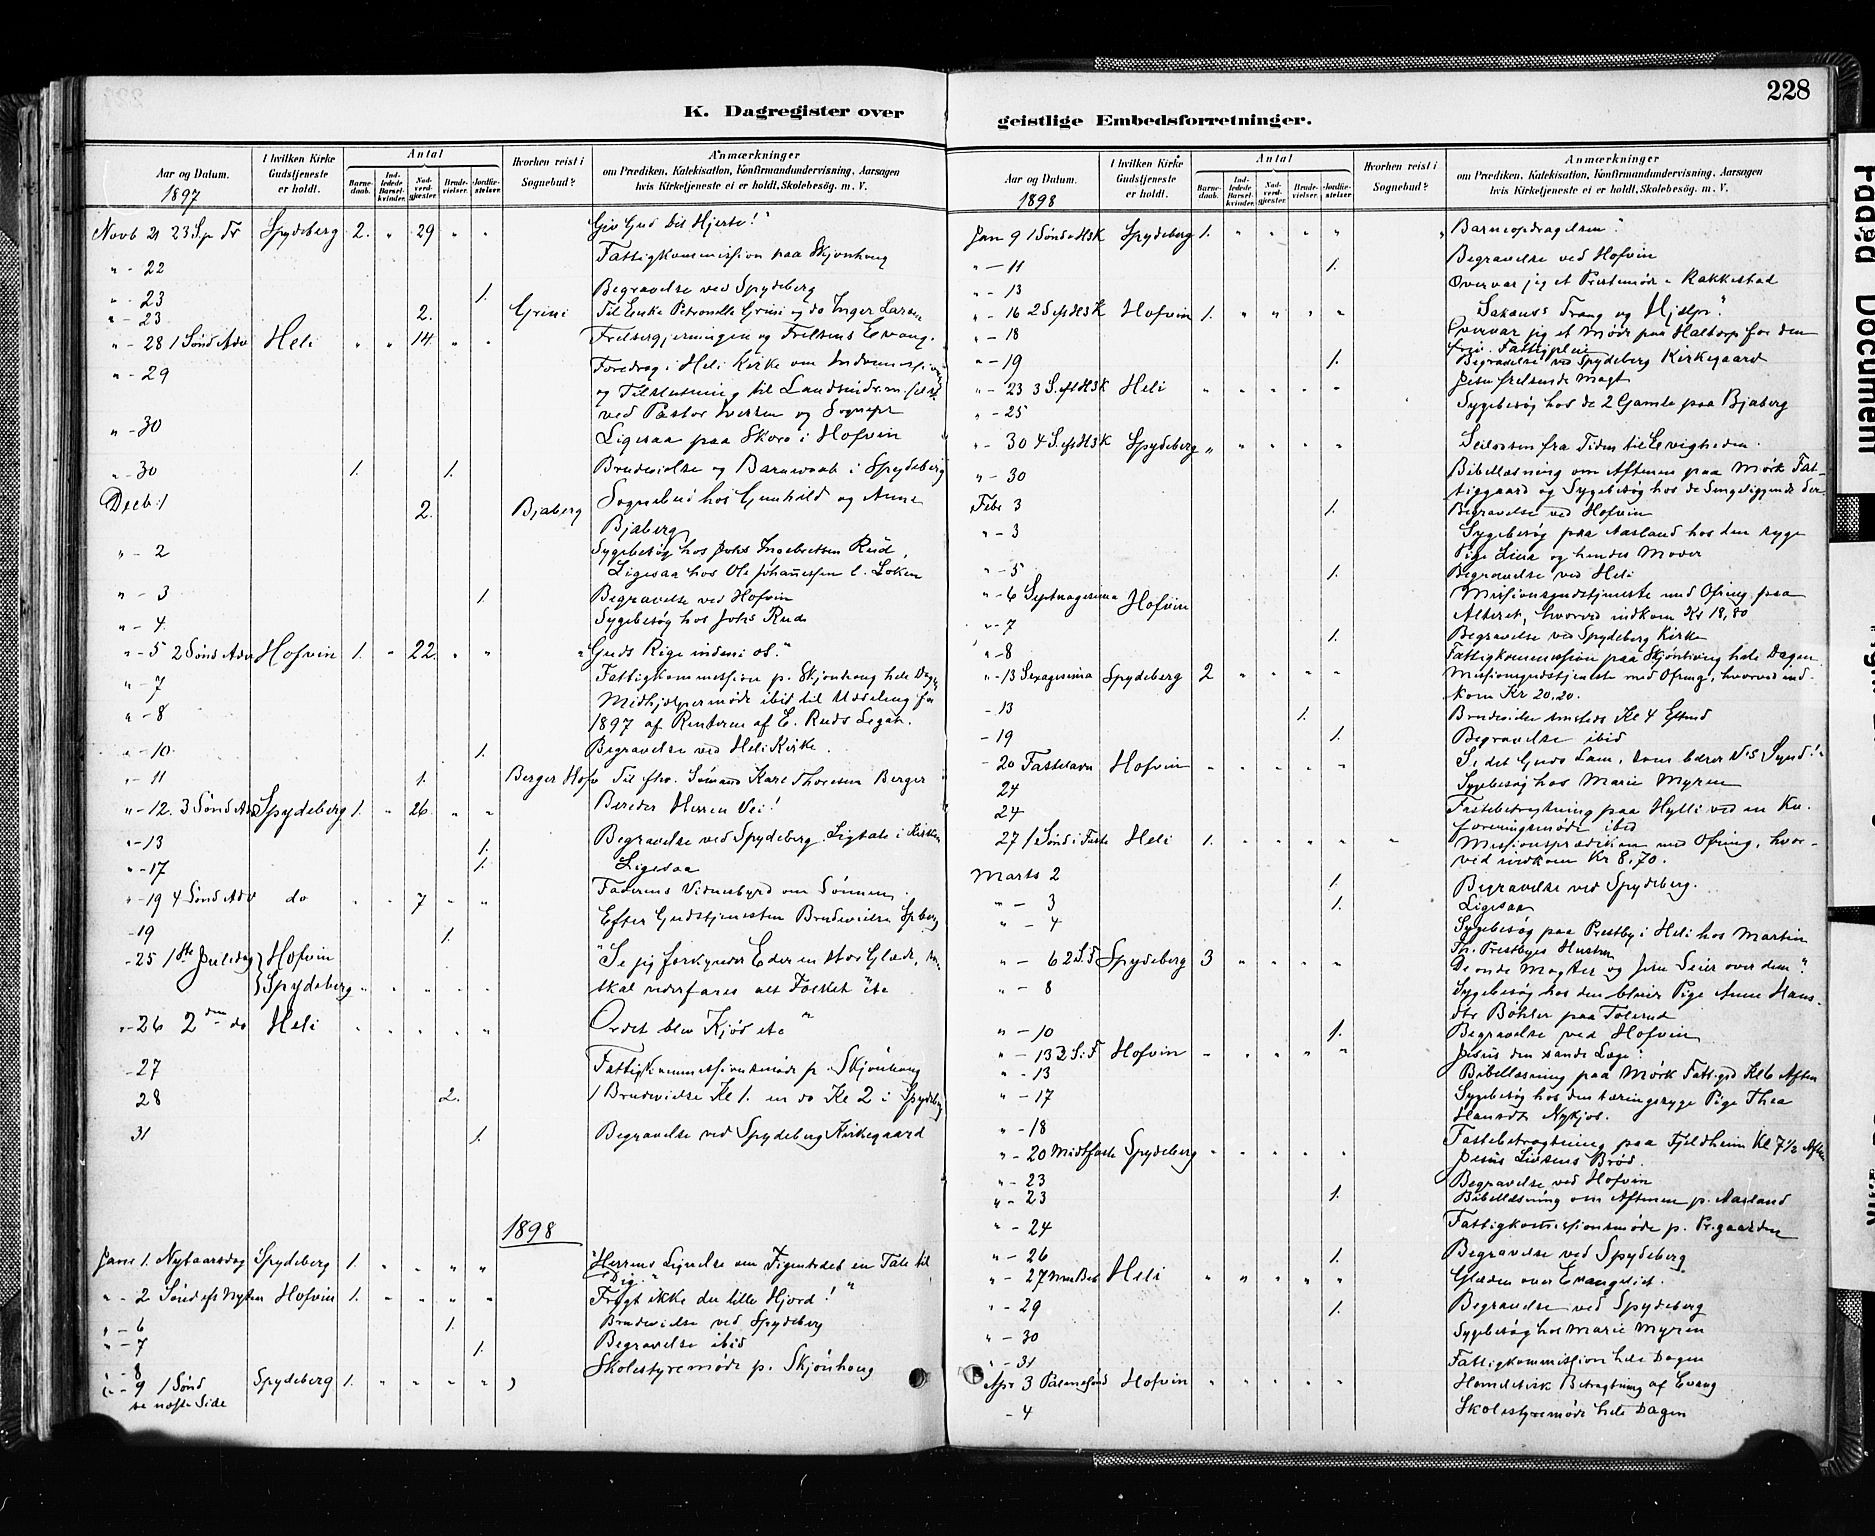 K. Dagregister over
Aar og Datum.
1897
I hvilken Kirke Gudstjeneste er holdt.
Antal
Barnedaab.
Indledede Barselkvinder.
Nadverdgjester.
Brudevielser.
Jordfæstelser.
Hvorhen reist i Sognebud?
Anmærkninger
om Prædiken, Katekisation, Konfirmandundervisning, Aarsagen
hvis Kirketjeneste ei er holdt, Skolebesög, m. V.
Novb 21 23 S. p Tr Spydeberg 2. " 29 " " Giv Gud Dit Hjerte!"
" - 22 Fattigkommission paa Skjönhaug
" - 23 1. Begravelse ved Spydeberg
" - 23 2. Grini Til Enke Petronelle Grini og do Inger Larsen
" - 28 1 Sönd Adv Heli " " 14 " " Frelsergjerningen og Frelsens Evang.
" - 29 Foredrag i Heli Kirke om Indremission
og Tilslutning til Landsindrem.selsk
ved Pastor Iversen og Sognepr
" - 30 Ligesaa paa Skoro i Hofvin
" - 30 1. 1. Brudevielse og Barnedaab i Spydeberg
Decb. 1 2. Bjaberg Sognebud hos Gunhild og Anne
Bjaberg
" - 2 Sygebesög hos Johs Ingebretsen Rud.
Ligesaa hos Ole Johannessen l. Löken
" - 3 1. Begravelse ved Hofvin
" - 4. Sygebesög hos Johs Rud
" - 5 2 Sönd Adv Hofvin 1. " 22. " " "Guds Rige indeni os."
" - 7 Fattigkommission p. Skjönhaug hele Dagen
" - 8 Medhjælpermöde ibid til Uddeling for
1897 af Renterne af E. Ruds Legat.
" - 10 1. Begravelse ved Heli Kirke.
" - 11 1. Berger Hofv Til fhv. Sömand Karl Thoresen Berger
" - 12. 3 Sönd Adv Spydeberg 1. " 26. " " Bereder Herren Vei!
" - 13 1. Begravelse ved Spydeberg. Ligtale i Kirken
" - 17 1. Ligesaa
" - 19 4 Sönd Adv do " " 7 " " Faderens Vidnesbyrd om Sönnen.
- 19 1. Efter Gudstjenesten Brudevielse Spberg
- 25 1ste Juledag } Hofvin "Se jeg forkynder Eder en stor Glæde,
} Spydeberg " " " " " skal vederfares alt Folket" etc
" - 26 2den do Heli " " " " " Ordet blev Kjöd etc"
- 27 Fattigkommissionsmöde p. Skjönhaug
28 2. 1 Brudevielse Kl 1. en do Kl 2 i Spydeberg
31 1. Begravelse ved Spydeberg Kirkegaard
1898
Jan 1. Nytaarsdag Spydeberg 1. " " " " "Herrens Lignelse om Figentræet en Tale til
Dig."
" - 2 Sönd eft Nytaar Hofvin 1. " " " " Frygt ikke du lille Hjord!"
" - 6 1. Brudevielse ved Spydeberg
" - 7 1. Begravelse ibid
- 8 Skolestyremöde p. Skjönhaug
" - 9 1 Sönd Spydeberg 1. " " " "
se næste Side
228
geistlige Embedsforretninger.
Aar og Datum.
1898
I hvilken Kirke Gudstjeneste er holdt.
Antal
Barnedaab.
Indledede Barselkvinder.
Nadverdgjester.
Brudevielser.
Jordfæstelser.
Hvorhen reist i Sognebud?
Anmærkninger
om Prædiken, Katekisation, Konfirmandundervisning, Aarsagen
hvis Kirketjeneste ei er holdt, Skolebesög, m. V.
Jan 9 1 Sönd e H3K Spydeberg 1. " " " " "Barneopdragelsen".
" - 11 1. Begravelse ved Hofvin
" - 13 Overvar jeg et Prestemöde i Rakkestad
" - 16 2 S eft H3K Hofvin 1. " " " " Sakens Trang og Hjelp".
" - 18 Overvar jeg et Möde paa Haltorp for den
friv. Fattigpleie
" - 19 1. Begravelse ved Spydeberg Kirkegaard
" - 23 3 S. eft H3K Heli " " " " " Jesu frelsende Magt
" - 25 Sygebesög hos de 2 Gamle paa Bjaberg
" - 30 4 S eft H3K Spydeberg " " " " " Seiladsen fra Tiden til Evigheden.
" - 30 Bibellæsning om Aftenen paa Mörk Fat-
tiggaard og Sygebesög hos de Sengeliggende der.
Febr 3 1. Begravelse ved Hofvin
" - 3 Sygebesög paa Aasland hos den syge
Pige Lina og hendes Moder
" - 5 1. Begravelse ved Heli
" - 6 Septuagesima Hofvin Missionsgudstjeneste med Ofring paa
Alteret, hvorved indkom Kr 18,80
" - 7 1. Begravelse ved Spydeberg Kirke
" - 8 Fattigkommission paa Skjönhaug hele Dagen.
" - 13 Sexagesima Spydeberg 2 " " " " Missionsgudstjeneste med Ofring, hvorved ind-
kom Kr 20.20.
- 13 1. Brudevielse smsteds Kl 4 Eftmd
- 19 1. Begravelse ibid
- 20 Fastelavn Hofvin " " " " " Se det Guds Lam, som bærer V's Synd!"
24 Sygebesög hos Marie Myren
24 Fastebetragtning paa Hylli ved en Kv.
foreningsmöde ibid
27 1 Sönd i Faste Heli 1. " " " " " Missionsprædiken med Ofring, hvor-
ved indkom Kr 8,70.
Marts 2 1. Begravelse ved Spydeberg.
" - 3 1. Ligesaa
" - 4 Sygebesög paa Prestby i Heli hos Martin
Th. Prestbyes Hustru
" - 6 2 S. F Spydeberg 3 " " " " De onde Magter og Jesu Seier over dem".
" - 8 Sygebesög hos den blinde Pige Anne Hans-
dtr Böhler paa Tolerud
" - 10 1. Begravelse ved Hofvin
" - 13 3 S. i F Hofvin " " " " " Jesus den sande Læge".
" - 13 Bibellæsning paa Mörk Fattiggd Kl 6 Aften
" - 17 Sygebesög hos den tæringssyge Pige Thea
Hansdtr Nykjos.
" - 18 Fastebetragtning paa Fjeldheim Kl 7 1/2 Aften
" - 20 Midtfaste Spydeberg " " " " " Jesus Livsens Bröd.
" - 23 1. Begravelse ved Hofvin
" - 23 Bibellæsning om Aftenen p. Aasland
" - 24 Fattigkommissionsmöde p. Pr.gaarden
" - 26 1. Begravelse ved Spydeberg
" - 27 Heli " " " " " Glæden over Evangeliet.
" - 29 1. Begravelse ved Spydeberg
" - 30 Sygebesög hos Marie Myren
" - 31 Fattigkommission hele Dagen
Apr 3 Palmesönd Hofvin " " " " " Homiletisk Betragtning af Evang
- 4 Skolestyremöde hele Dagen